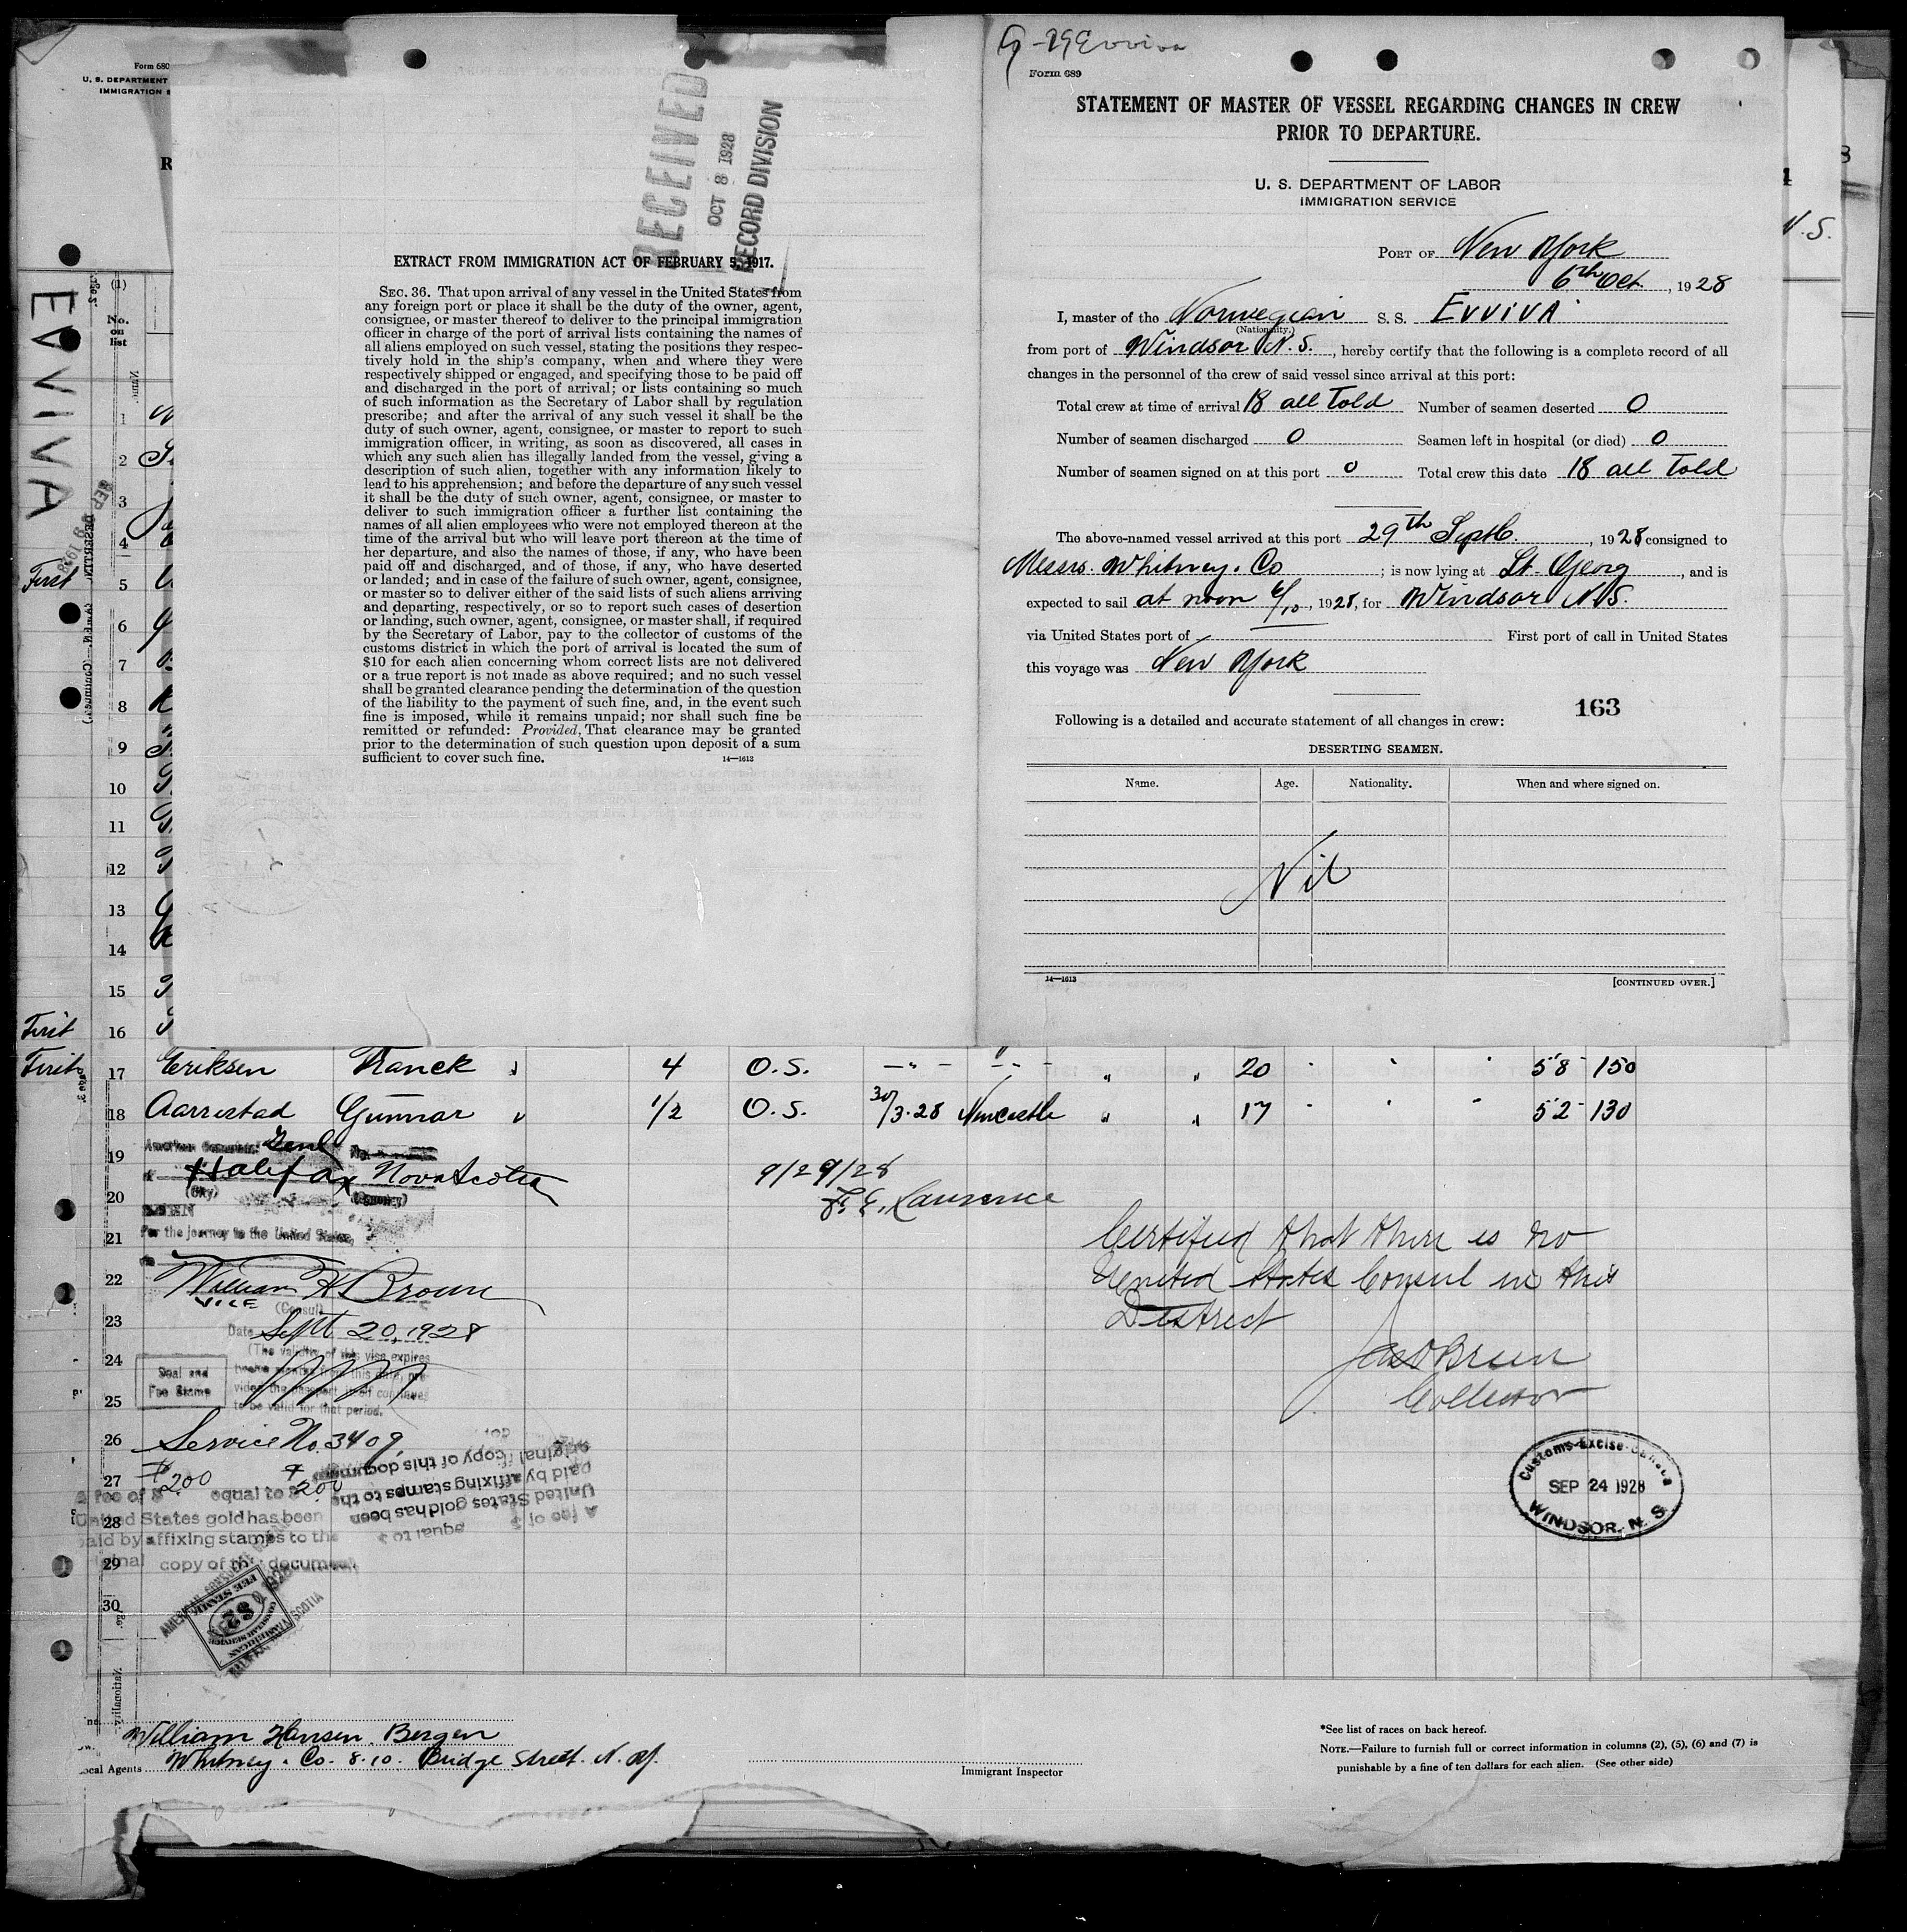 Form 680
U. S. DEPARTMENT
IMMIGRATION S
R
EVVIVA
SEP 29 1928
(1)
No.
on
list
1
2
3
4
First 5
6
7
8
9
10
11
12
13
14
15
First 16
RECEIVED
OCT 8 1928
RECORD DIVISION
EXTRACT FROM IMMIGRATION ACT OF FEBRUARY 5, 1917.
SEC. 36. That upon arrival of any vessel in the United States from
any foreign port or place it shall be the duty of the owner, agent,
consignee, or master thereof to deliver to the principal immigration
officer in charge of the port of arrival lists containing the names of
all aliens employed on such vessel, stating the positions they respec-
tively hold in the ship's company, when and where they were
respectively shipped or engaged, and specifying those to be paid off
and discharged in the port of arrival; or lists containing so much
of such information as the Secretary of Labor shall by regulation
prescribe; and after the arrival of any such vessel it shall be the
duty of such owner, agent, consignee, or master to report to such
immigration officer, in writing, as soon as discovered, all cases in
which any such alien has illegally landed from the vessel, giving a
description of such alien, together with any information likely to
lead to his apprehension; and before the departure of any such vessel
it shall be the duty of such owner, agent, consignee, or master to
deliver to such immigration officer a further list containing the
names of all alien employees who were not employed thereon at the
time of the arrival but who will leave port thereon at the time of
her departure, and also the names of those, if any, who have been
paid off and discharged, and of those, if any, who have deserted
or landed; and in case of the failure of such owner, agent, consignee,
or master so to deliver either of the said lists of such aliens arriving
and departing, respectively, or so to report such cases of desertion
or landing, such owner, agent, consignee, or master shall, if required
by the Secretary of Labor, pay to the collector of customs of the
customs district in which the port of arrival is located the sum of
$10 for each alien concerning whom correct lists are not delivered
or a true report is not made as above required; and no such vessel
shall be granted clearance pending the determination of the question
of the liability to the payment of such fine, and, in the event such
fine is imposed, while it remains unpaid; nor shall such fine be
remitted or refunded: Provided, That clearance may be granted
prior to the determination of such question upon deposit of a sum
sufficient to cover such fine. 14—1613
Evviva
Form 689
STATEMENT OF MASTER OF VESSEL REGARDING CHANGES IN CREW
PRIOR TO DEPARTURE.
U. S. DEPARTMENT OF LABOR
IMMIGRATION SERVICE
PORT OF New York
6th Oct., 1928
I, master of the Norwegian S. S. EVVIVA
(Nationality.)
from port of Windsor N. S., hereby certify that the following is a complete record of all
changes in the personnel of the crew of said vessel since arrival at this port:
Total crew at time of arrival 18 all Told Number of seamen deserted 0
Number of seamen discharged 0 Seamen left in hospital (or died) 0
Number of seamen signed on at this port 0 Total crew this date 18 all Told
The above-named vessel arrived at this port 29th Septb., 1928 consigned to
Messrs. Whitney. Co ; is now lying at St. Georg, and is
expected to sail at noon 6/10, 1928, for Windsor N.S.
via United States port of — First port of call in United States
this voyage was New York
163
Following is a detailed and accurate statement of all changes in crew:
DESERTING SEAMEN.
Name. Age. Nationality. When and where signed on.
Nil
14—1613 [CONTINUED OVER.]
N. S.
First 17 Eriksen Franck 4 O.S. 20 5'8 150
18 Aarrestad Gunnar 1/2 O.S. 30/3.28 Newcastle 17 5'2 130
19
20
21
22
23
24
25
26
27
28
29
30
Genl
Halifax Nova Scotia
(City) (Country)
For the journey to the United States,
William H Brown
VICE
(Consul)
Date Sept 20, 1928
(The validity of this visa expires
twelve months from this date, pro-
vided the passport itself continues
to be valid for that period.
Seal and
Fee Stamp
Service No. 3409,
A fee of $ 200 equal to $ 200
United States gold has been
paid by affixing stamps to the
original copy of this document
A fee of $ equal to $
United States gold has been
paid by affixing stamps to the
original copy of this document
AMERICAN
CONSULAR SERVICE
$2
FEE STAMP
9/29/28
F. E. Laurence
Certified that there is no
United States Consul in this
District
Jas OBrien
Collector
Customs-Excise-Canada
SEP 24 1928
WINDSOR, N. S.
William Hansen. Bergen
Local Agents Whitney. Co. 8.10. Bridge Street. N. Y.
Immigrant Inspector
*See list of races on back hereof.
NOTE.—Failure to furnish full or correct information in columns (2), (5), (6) and (7) is
punishable by a fine of ten dollars for each alien. (See other side)